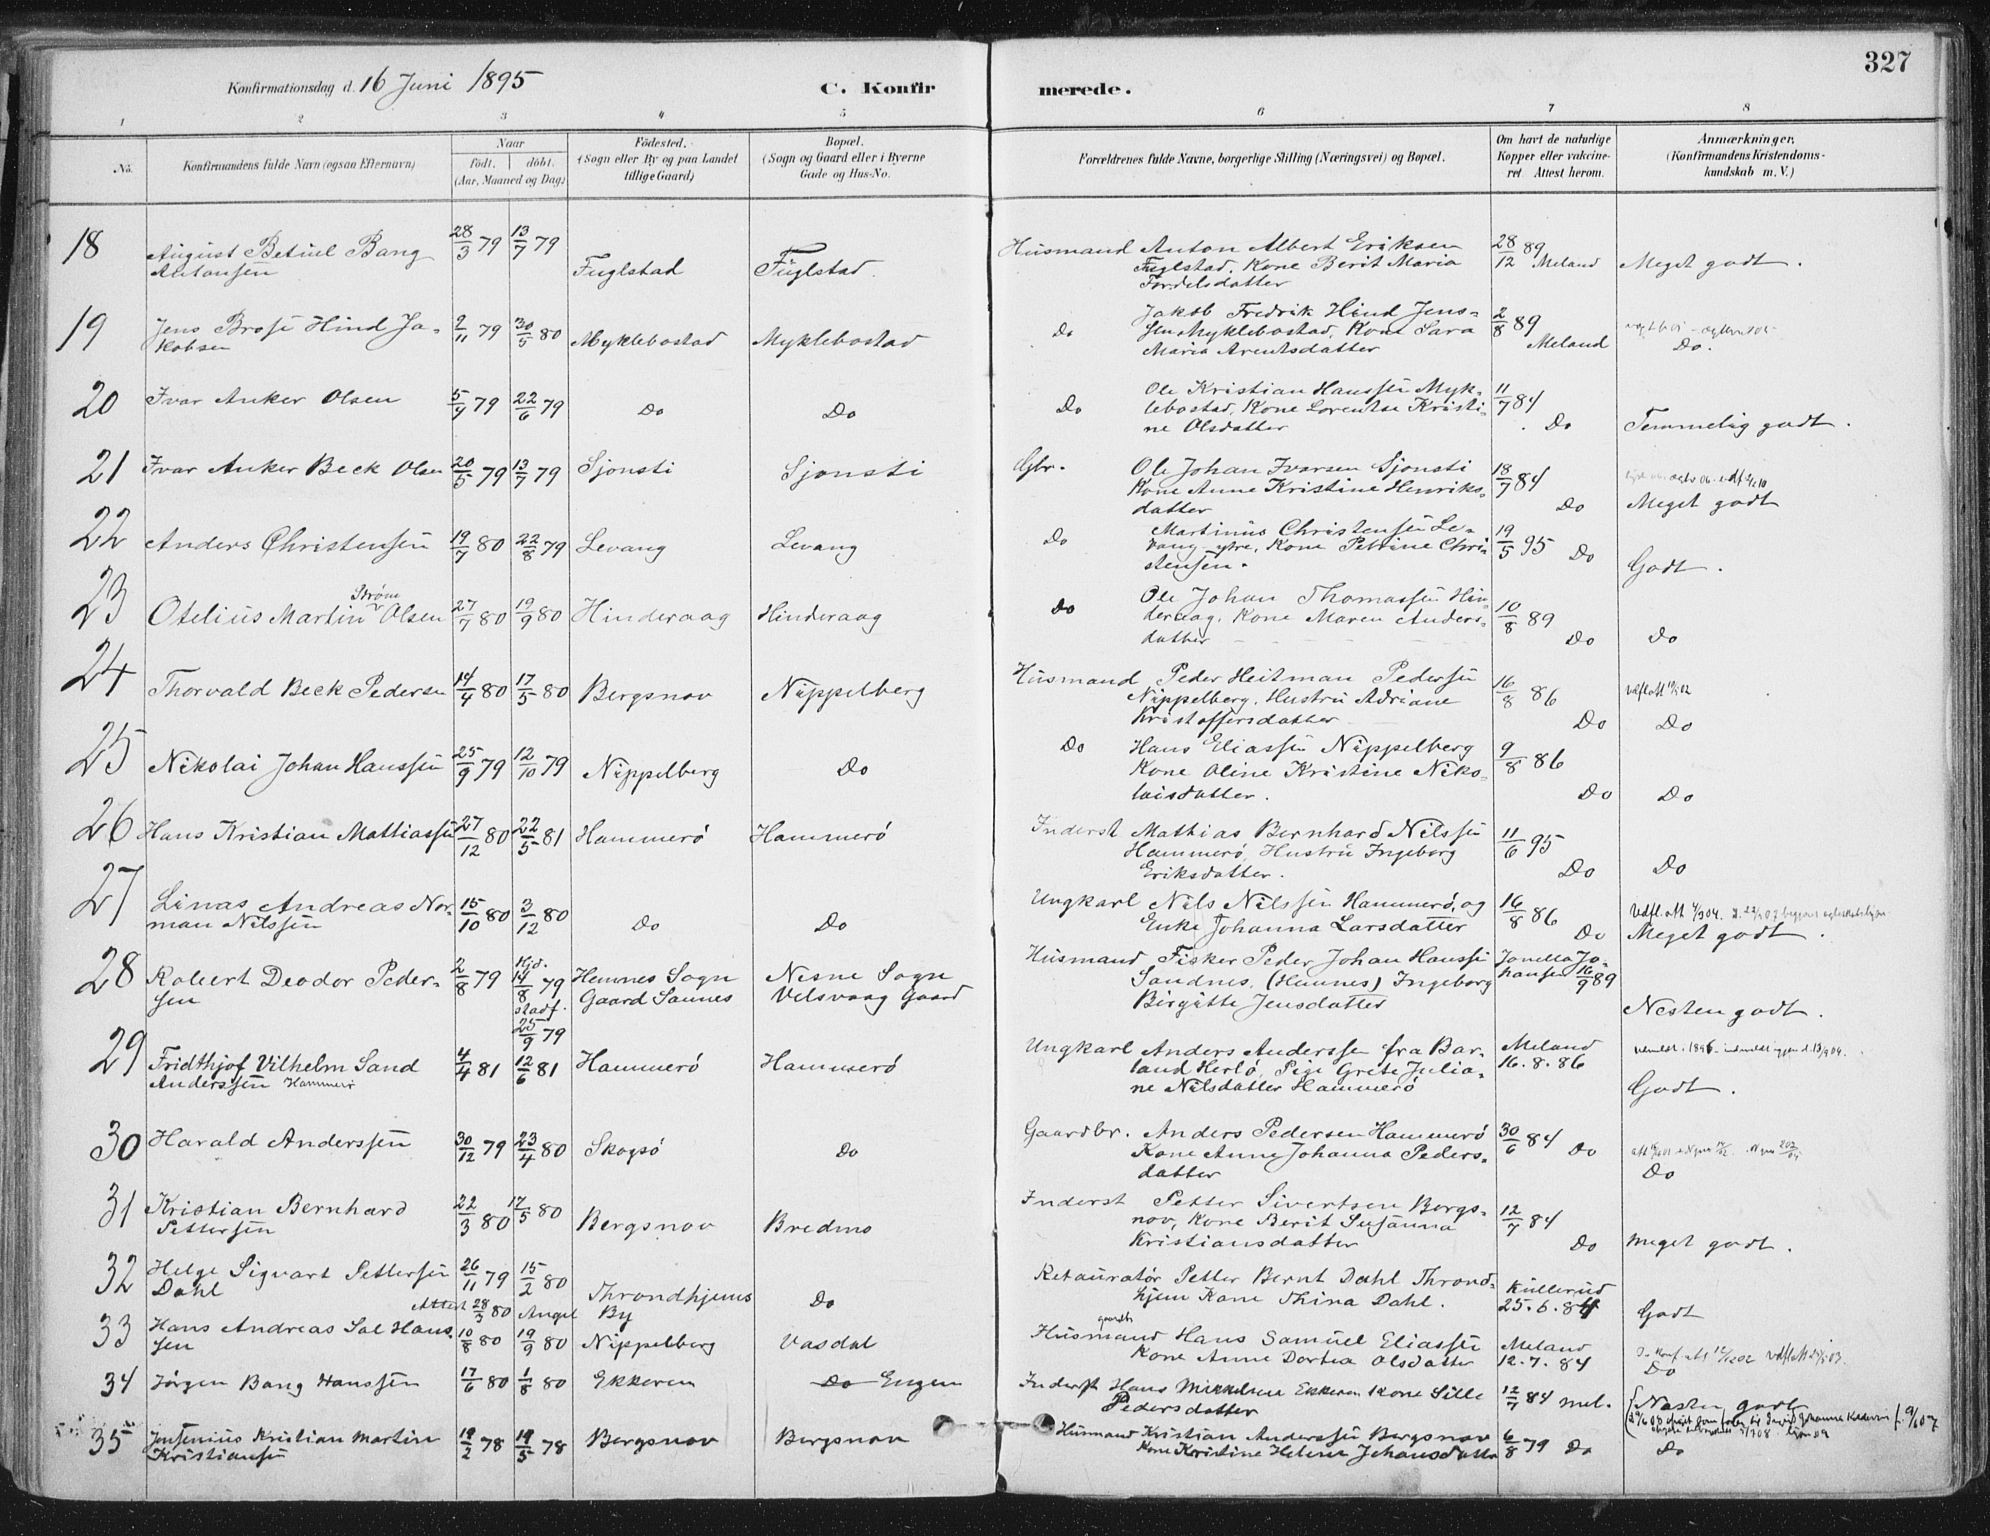 327
Konfirmationsdag d. 16 Juni 1895
C. Konfirmerede.
1 2 3 4 5 6 7 8
No.
Konfirmandens fulde Navn (ogsaa Efternavn)
Naar
födt. döbt.
(Aar, Maaned og Dag)
Födested.
(Sogn eller By og paa Landet
tillige Gaard)
Bopæl.
(Sogn og Gaard eller i Byerne
Gade og Hus-No.
Forældrenes fulde Navne, borgerlige Stilling (Næringsvei) og Bopæl.
Om havt de naturlige
Kopper eller vakcine-
ret. Attest herom.
Anmærkninger.
(Konfirmandens Kristendoms-
kundskab m. V.)
18 August Betuel Bang 28/3 79 13/7 79 Fuglstad Fuglstad. Husmand Anton Albert Eriksen 28/12 89 Meland Meget godt.
Antonsen Fuglstad. Kone Berit Maria
Fordelsdatter
19 Jens Brose Hind Ja- 2/11 79 30/5 80 Myklebostad Myklebostad Do Jakob Fredrik Hind Jens- 2/8 89 Meland Do.
kobsen sen Myklebostad, Kone Sara
Maria Arentsdatter
20 Ivar Anker Olsen 5/4 79 22/6 79 Do Do Do Ole Kristian Hanssen Myk- 11/7 84 Do Temmelig godt.
lebostad, Kone Lorentse Kristi-
ne Olsdatter
21 Ivar Anker Beck Olsen 20/5 79 13/7 79 Sjonsti Sjonsti Gbr. Ole Johan Ivarsen Sjonsti 18/7 84 Do Meget godt
Kone Anne Kristine Henriks-
datter
22 Anders Christensen 19/7 80 22/8 79 Levang Levang Do Martinus Christensen Le- 19/5 95 Do Godt.
vang ytre, Kone Petrine Chri-
stensen.
23 Otelius Martin Strøm Olsen 27/7 80 19/9 80 Hinderaag Hinderaag Do Ole Johan Thomassen Hin- 10/8 89 Do Do
deraag, Kone Maren Anders-
datter
24 Thorvald Beck Pedersen 14/4 80 17/5 80 Bergsnov Nippelberg Husmand Peder Heitman Pedersen 16/8 86 Do Do
Nippelberg. Hustru Adriane
Kristoffersdatter
25 Nikolai Johan Hanssen 25/9 79 12/10 79 Nippelberg Do Do Hans Eliassen Nippelberg 9/8 86 Do Do
Kone Oline Kristine Niko-
laisdatter.
26 Hans Kristian Mattiassen 27/12 80 22/5 81 Hammerö Hammerö Inderst Mathias Bernhard Nilssen 11/6 95 Do Do
Hammerö, Hustru Ingeborg
Eriksdatter.
27 Linas Andreas Nor- 15/10 80 3/12 80 Do Do Ungkarl Nils Nilssen Hammerö, og 16/8 86 Do Meget godt.
man Nilssen Enke Johanna Larsdatter
28 Robert Deodor Peder- 2/8 79 Hjd. 14/8 79 Hemnes Sogn Nesne Sogn Husmand Fisker Peder Johan Hanssen Jonetta Jo-
sen stadf. 25/9 79 Gaard Sannes Velsvaag Gaard Sandnes, (Hemnes) Ingeborg hansen 16/9 89
Birgitte Jensdatter Nesten godt.
29 Fridthjof Vilhelm Sand 4/4 81 12/6 81 Hammerö Hammerö Ungkarl Anders Anderssen fra Bar- Meland
Anderssen Hammerö land Herlö, Pige Grete Julia- 16.8.86 Godt.
ne Nilsdatter Hammerö
30 Harald Anderssen 30/12 79 23/4 80 Skogsö Do Gaardbr. Anders Pedersen Hammerö 30/6 84 Do Do
Kone Anne Johanna Peders-
datter
31 Kristian Bernhard 22/3 80 17/5 80 Bergsnov Bredmo Inderst Petter Sivertsen Bergs- 12/7 84 Do Meget godt.
Pettersen nov, Kone Berit Susanna
Kristiansdatter
32 Helge Sigvart Pettersen 26/11 79 15/2 80 Throndhjems Do Restauratör Petter Bernt Dahl Thrond- Kullerud
Dahl By hjem Kone Thina Dahl. 25.6.84 Godt
Attest 28/3 80 Angel
33 Hans Andreas Sal Hans- 10/8 80 19/9 80 Nippelberg Vasdal Husmand Hans Samuel Eliassen Meland
sen Kone Anne Dortea Olsdatter 12.7.84 Do
34 Jørgen Bang Hanssen 17/6 80 1/8 80 Ekkeren Do Engen Inderst Hans Mikkelsen Ekkeren Kone Sille 12/7 84 Mel. Næsten godt
Pedersdatter
35 Jensenius Kristian Martin 12/2 78 19/5 78 Bergsnov Bergsnov Husmand Kristian Anderssen Bergsnov 6/8 79 Do Do
Kristiansen Kone Kristine Helene Johansdatter